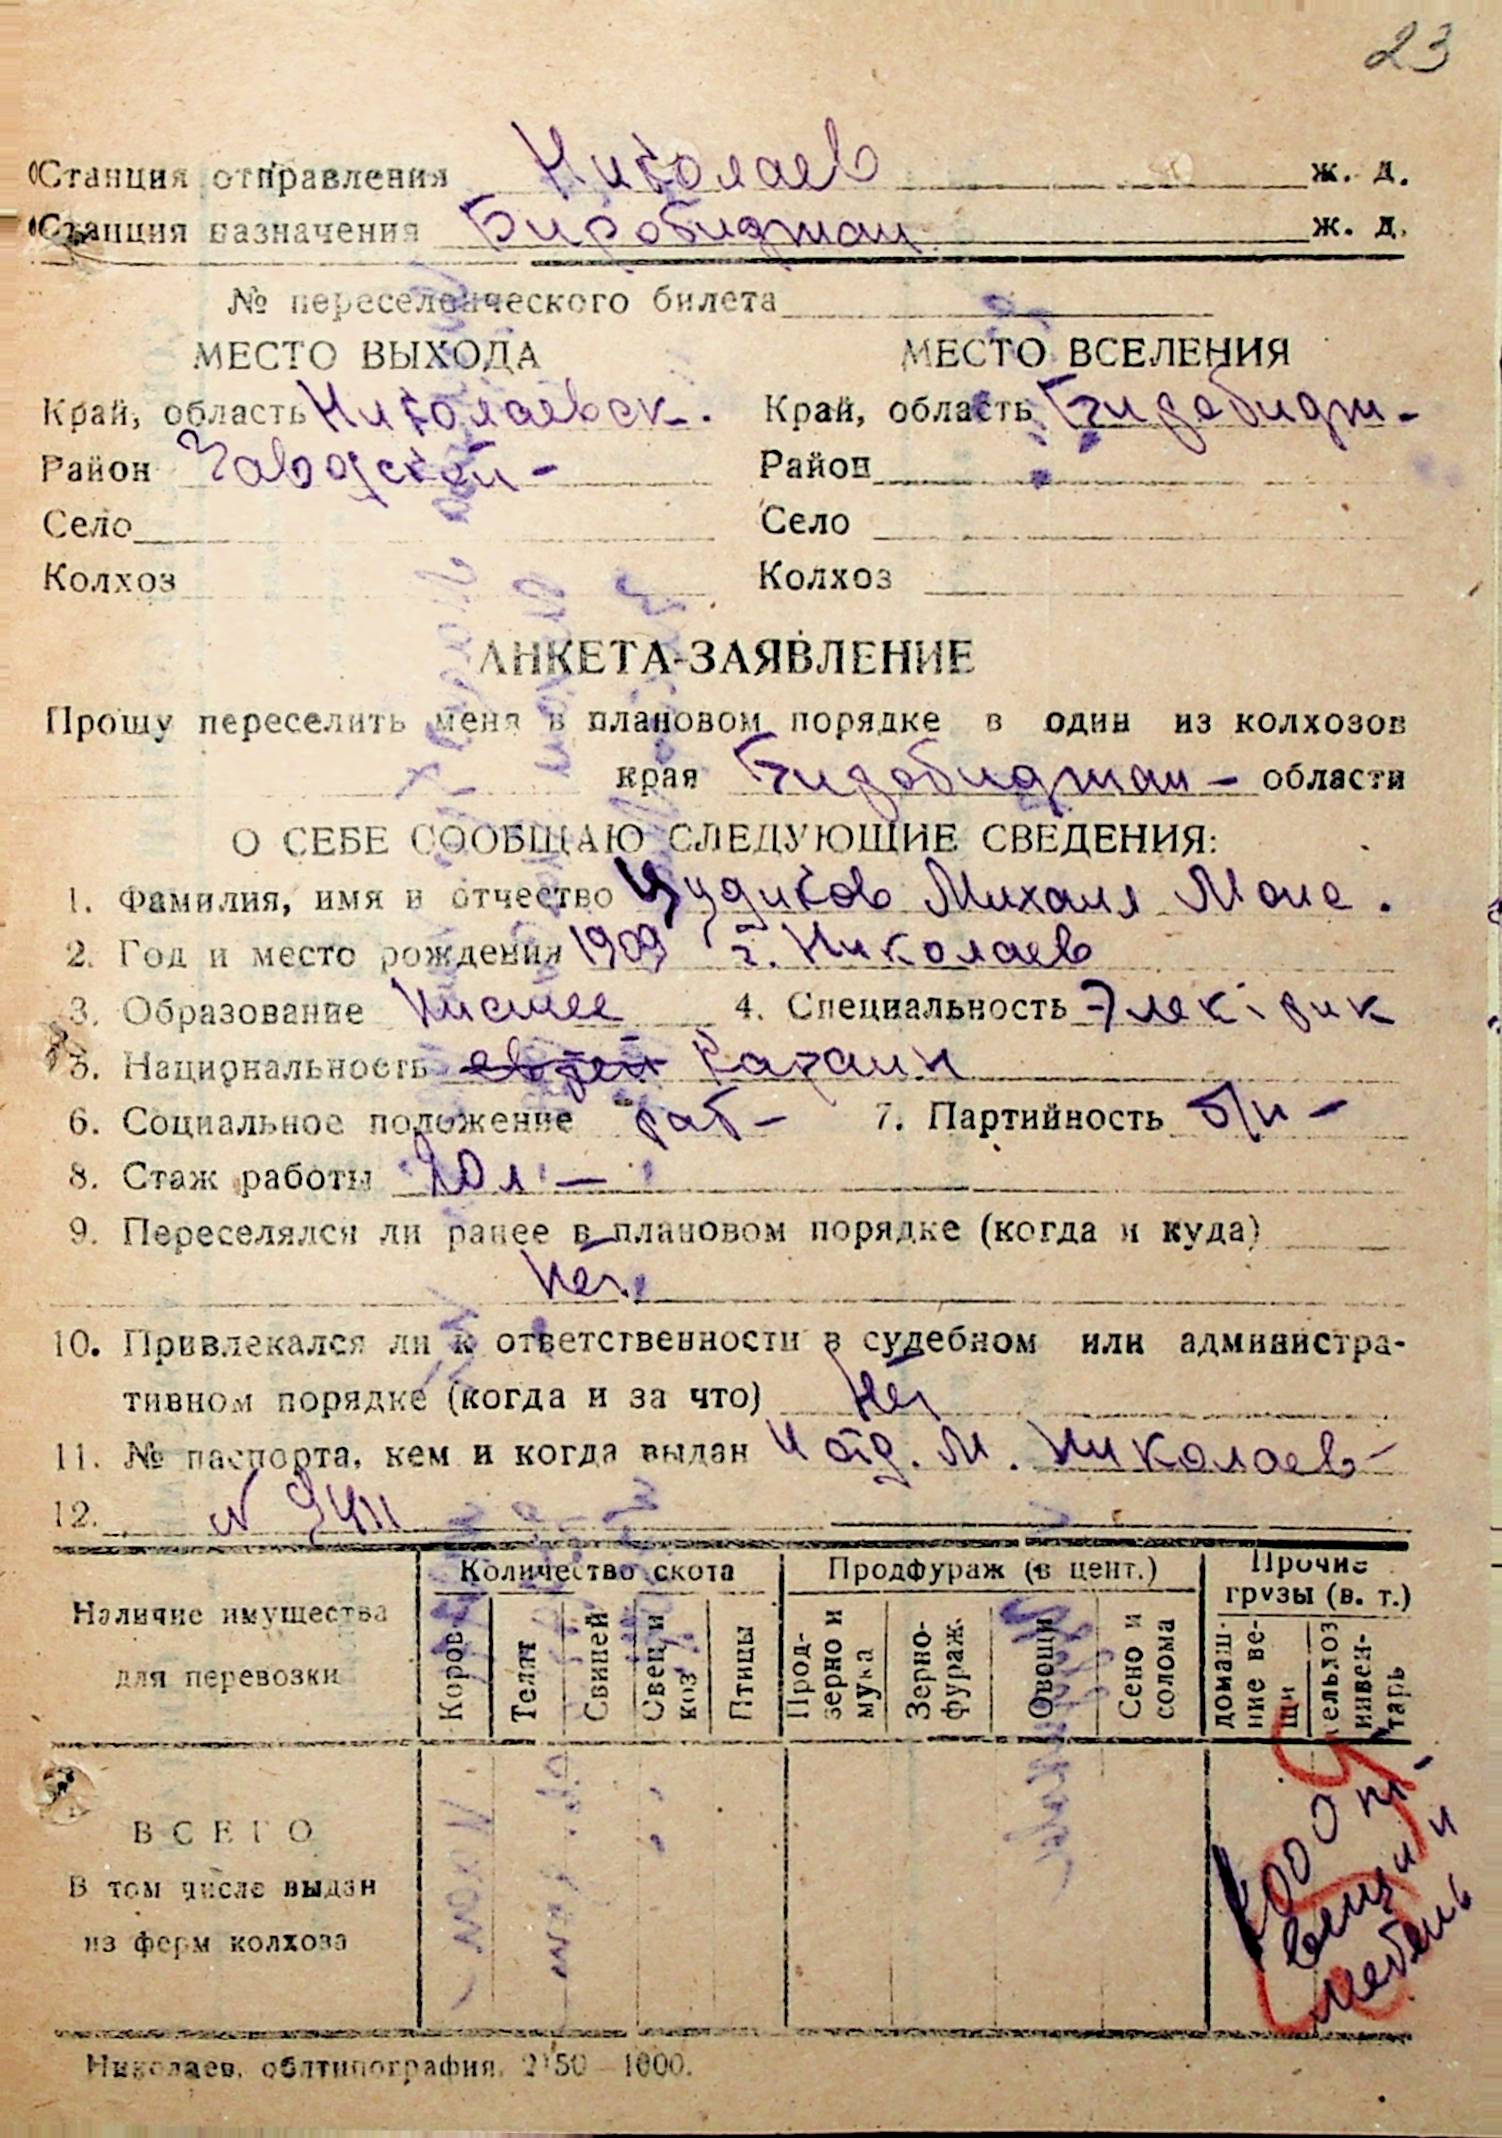 23
Станция отправления Николаев ж. д.
Станция назначения Биробиджан ж. д.
№ переселенческого билета
МЕСТО ВЫХОДА МЕСТО ВСЕЛЕНИЯ
Край, область Николаевск. Край, область Биробидж-
Район Заводской - Район
Село Село
Колхоз Колхоз
АНКЕТА-ЗАЯВЛЕНИЕ
Прошу переселить меня в плановом порядке в один из колхозов
края Биробиджан - области
О СЕБЕ СООБЩАЮ СЛЕДУЮЩИЕ СВЕДЕНИЯ:
1. Фамилия, имя и отчество Михаил Моис.
2. Год и место рождения 1909 г. Николаев
3. Образование Низшее 4. Специальность Электрик
5. Национальность еврей Караим
6. Социальное положение раб - 7. Партийность б/п -
8. Стаж работы 20 л -
9. Переселялся ли ранее в плановом порядке (когда и куда)
Нет
10. Привлекался ли к ответственности в судебном или администра-
тивном порядке (когда и за что) Нет
11. № паспорта, кем и когда выдан отд. М. Николаев -
12. N
Количество скота Продфураж (в цент.) Прочие
грузы (в. т.)
Наличие имущества
для перевозки
Коров Телят Свиней Овец и коз Птицы Прод-зерно и мука Зерно-фураж. Овощи Сено и солома домаш-ние ве-щи сельхоз инвен-тарь
ВСЕГО
В том числе выдан
из ферм колхоза
вещи и
мебель
Николаев, облтипография, 2150—1000.